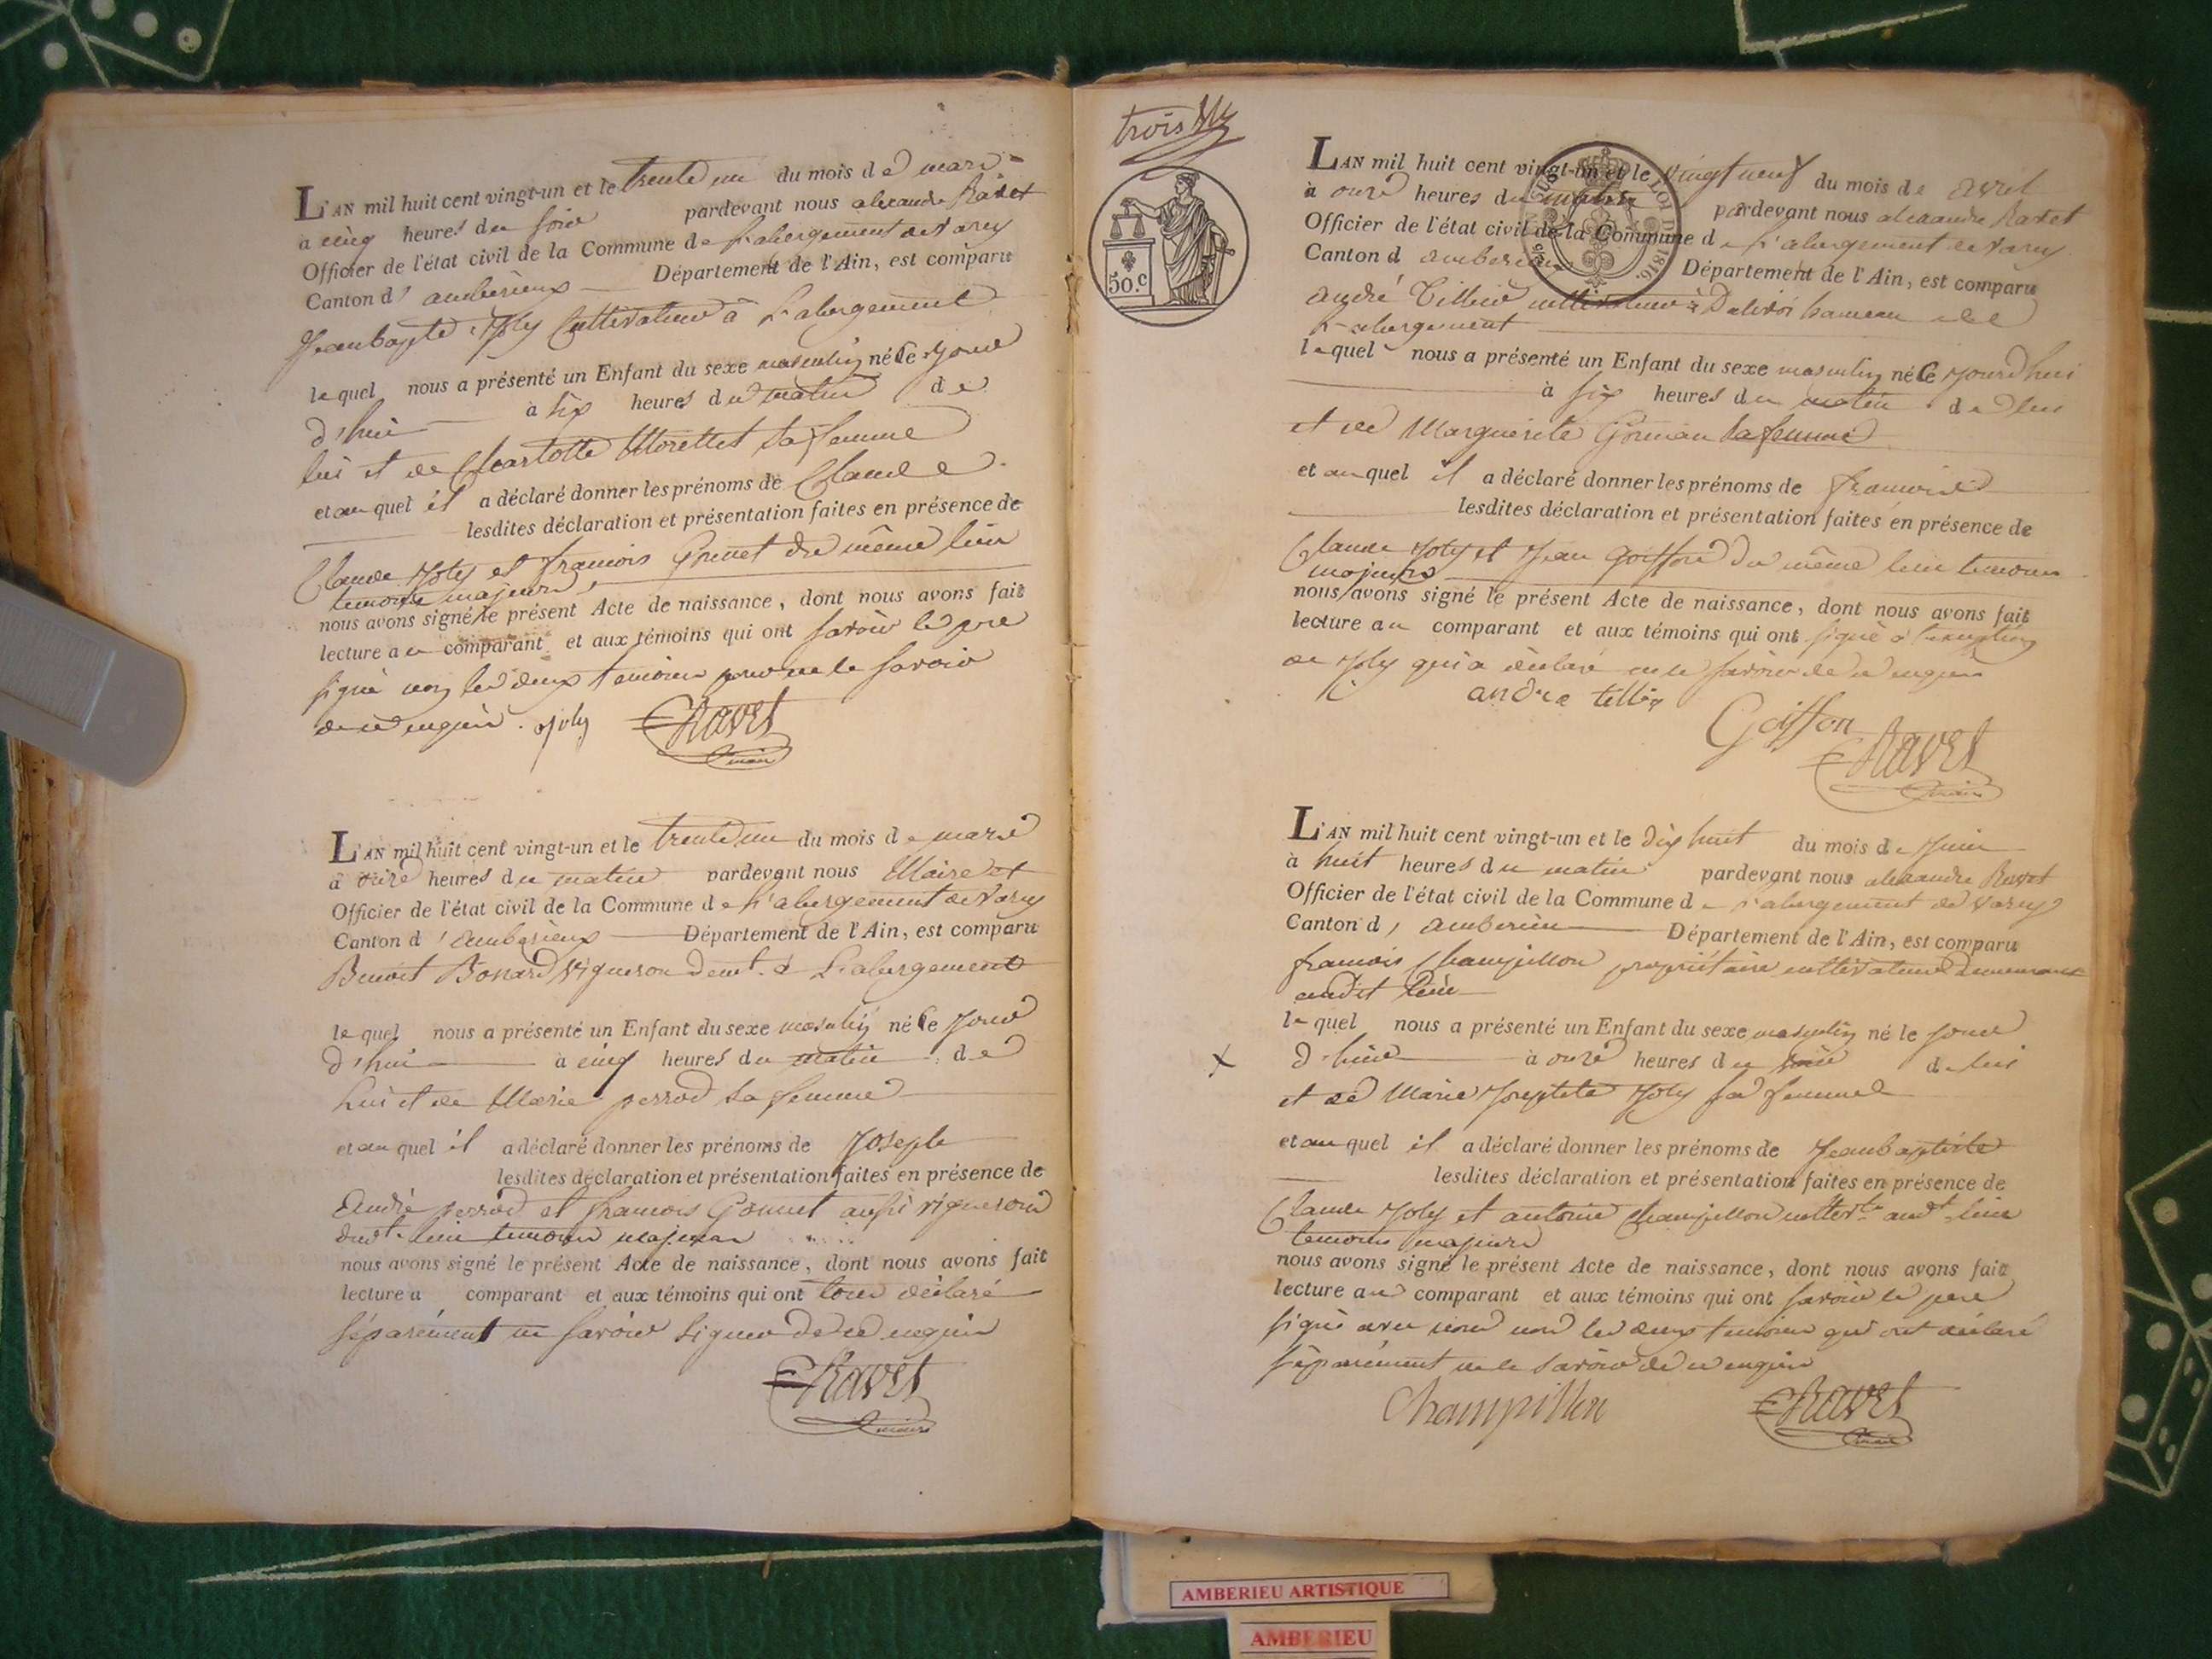 L'AN mil huit cent vingt-un et le trente un du mois de mars
à cinq heures du soir pardevant nous alexandre Ravet
Officier de l'état civil de la Commune de L'abergement de Varey
Canton d'amberieux Département de l'Ain, est comparu
Jeanbapte Joly Cultivateur à L'abergement
lequel nous a présenté un Enfant du sexe masculin né Ce jour
d'hui à six heures du matin de
lui et de Charlotte Morellet sa femme
et au quel il a déclaré donner les prénoms de Claude
lesdites déclaration et présentation faites en présence de
Claude Joly et francois Grinet du même lieu
temoins majeurs
nous avons signé le présent Acte de naissance, dont nous avons fait
lecture au comparant et aux témoins qui ont savoir le pere
signé non les deux temoins pour ne le savoir
de ce enquis. Joly Ravet
maire
L'AN mil huit cent vingt-un et le trente un du mois de mars
à onze heures du matin pardevant nous Maire et
Officier de l'état civil de la Commune de L'abergement de Varey
Canton d'amberieux Département de l'Ain, est comparu
Benoit Bonard Vigneron demt. à L'abergement
lequel nous a présenté un Enfant du sexe masculin né Ce jour
d'hui à cinq heures du matin de
lui et de Marie perrod sa femme
et au quel il a déclaré donner les prénoms de Joseph
lesdites déclaration et présentation faites en présence de
André perrod et francois Gonnet aussi vignerons
dudt. lieu temoins majeurs
nous avons signé le présent Acte de naissance, dont nous avons fait
lecture a comparant et aux témoins qui ont tous déclaré
séparément ne savoir signer de ce enquis
Ravet
maire
trois
50.C
LOI DE 1816.
L'AN mil huit cent vingt-un et le vingt neuf du mois de avril
à onze heures du matin pardevant nous alexandre Ravet
Officier de l'état civil de la Commune de L'abergement de Varey
Canton d amberieux Département de l'Ain, est comparu
andré Tillier cultivateur à hameau de
L'abergement
lequel nous a présenté un Enfant du sexe masculin né Ce jourd'hui
à six heures du matin de lui
et de Marguerite Gorman sa femme
et au quel il a déclaré donner les prénoms de francois
lesdites déclaration et présentation faites en présence de
Claude Joly et Jean Goiffon du même lieu temoins
majeurs
nous avons signé le présent Acte de naissance, dont nous avons fait
lecture au comparant et aux témoins qui ont signé à l'exception
de Joly qui a déclaré ne le savoir de ce enquis
andre tillier
Goiffon
Ravet
maire
L'AN mil huit cent vingt-un et le dix huit du mois de Juin
à huit heures du matin pardevant nous alexandre Ravet
Officier de l'état civil de la Commune de L'abergement de Varey
Canton d'amberieux Département de l'Ain, est comparu
francois Champillon propriétaire cultivateur demeurant
audit lieu
lequel nous a présenté un Enfant du sexe masculin né le jour
X d'hier à onze heures du soir de lui
et de Marie Josephte Joly sa femme
et au quel il a déclaré donner les prénoms de Jeanbaptiste
lesdites déclaration et présentation faites en présence de
Claude Joly et antoine Champillon audt lieu
temoins majeurs
nous avons signé le présent Acte de naissance, dont nous avons fait
lecture au comparant et aux témoins qui ont savoir le pere
signé avec nous non les deux temoins qui ont déclaré
séparément ne le savoir de ce enquis
Champillon Ravet
maire
AMBERIEU ARTISTIQUE
AMBERIEU